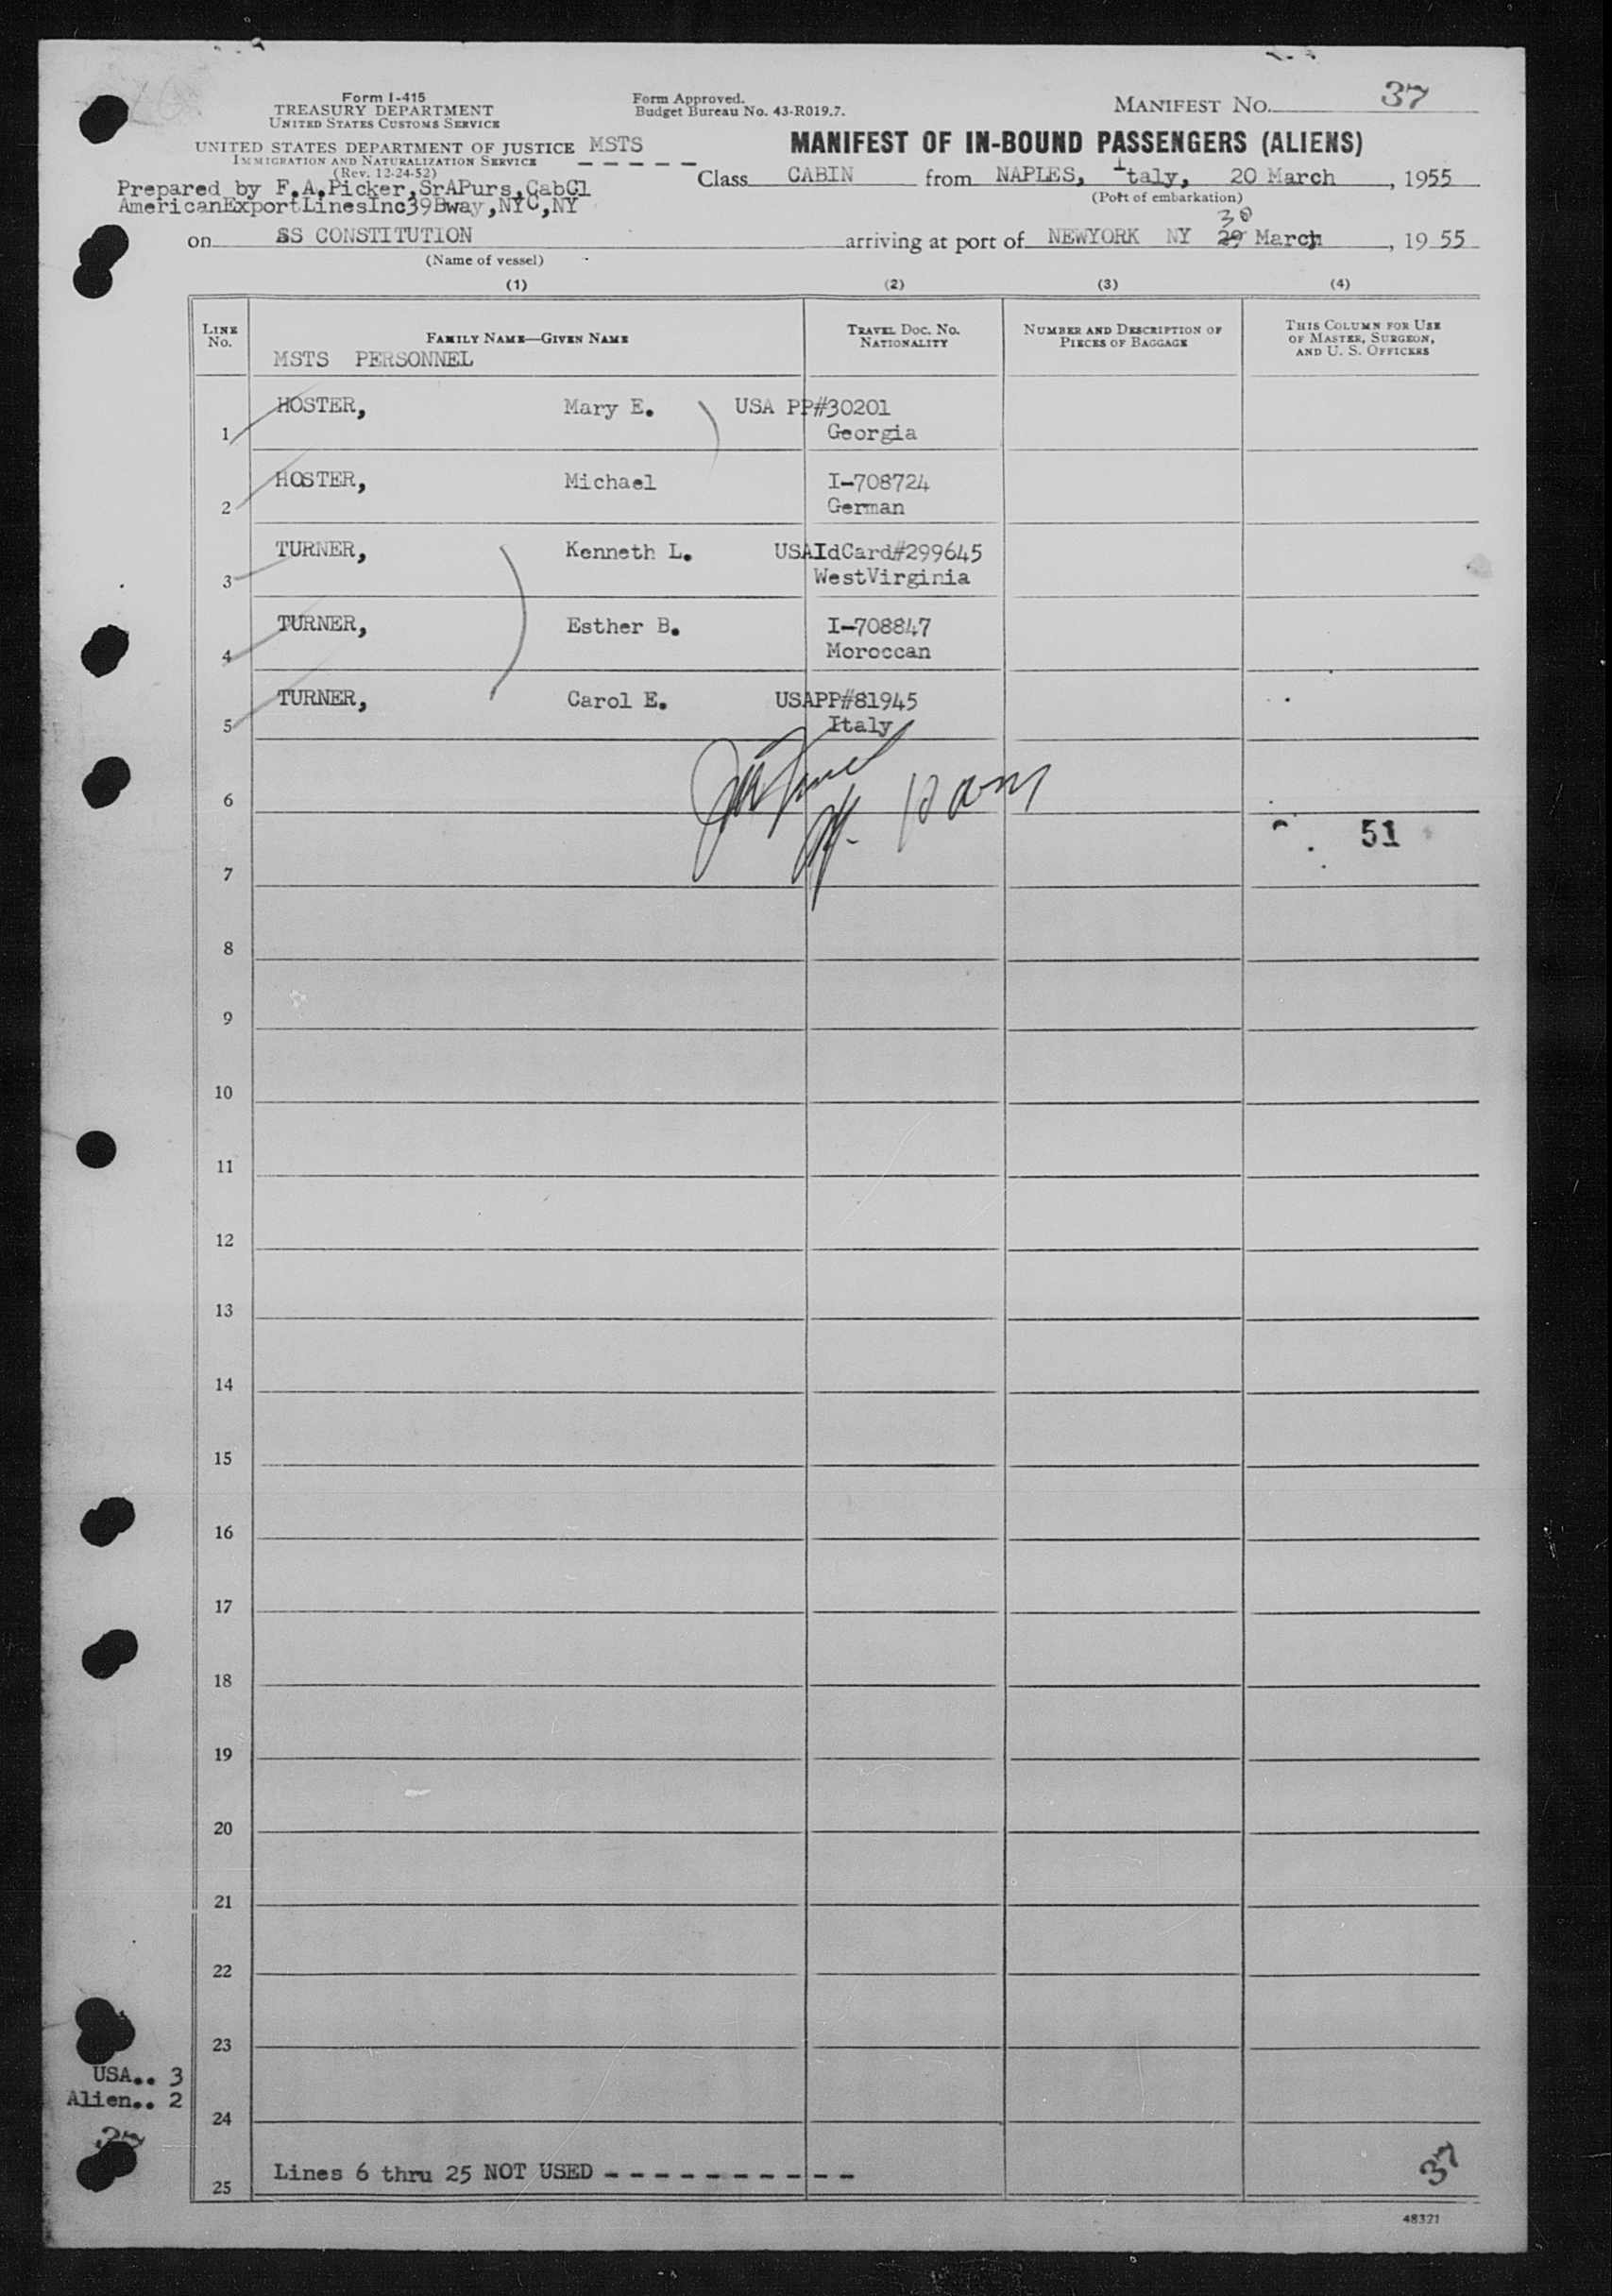 Form I-415
TREASURY DEPARTMENT
UNITED STATES CUSTOMS SERVICE
Form Approved.
Budget Bureau No. 43-R019.7.
MANIFEST No. 37
UNITED STATES DEPARTMENT OF JUSTICE MSTS
IMMIGRATION AND NATURALIZATION SERVICE - - - - -
(Rev. 12-24-52)
MANIFEST OF IN-BOUND PASSENGERS (ALIENS)
Prepared by F.A.Picker,SrAPurs,CabCl
AmericanExportLinesInc39Bway,NYC,NY
Class CABIN from NAPLES, Italy, 20 March, 1955
(Port of embarkation)
30
on SS CONSTITUTION arriving at port of NEWYORK NY 29 March, 19 55
(Name of vessel)
(1) (2) (3) (4)
LINE No. FAMILY NAME—GIVEN NAME TRAVEL DOC. NO. NATIONALITY NUMBER AND DESCRIPTION OF PIECES OF BAGGAGE THIS COLUMN FOR USE OF MASTER, SURGEON, AND U. S. OFFICERS
MSTS PERSONNEL
HOSTER, Mary E. USA PP#30201
1 Georgia
HOSTER, Michael I-708724
2 German
TURNER, Kenneth L. USAIdCard#299645
3 WestVirginia
TURNER, Esther B. I-708847
4 Moroccan
TURNER, Carol E. USAPP#81945
5 Italy
6
51
7
8
9
10
11
12
13
14
15
16
17
18
19
20
21
22
23
USA.. 3
Alien.. 2
24
37
Lines 6 thru 25 NOT USED - - - - - - - - - - -
25
37
48321